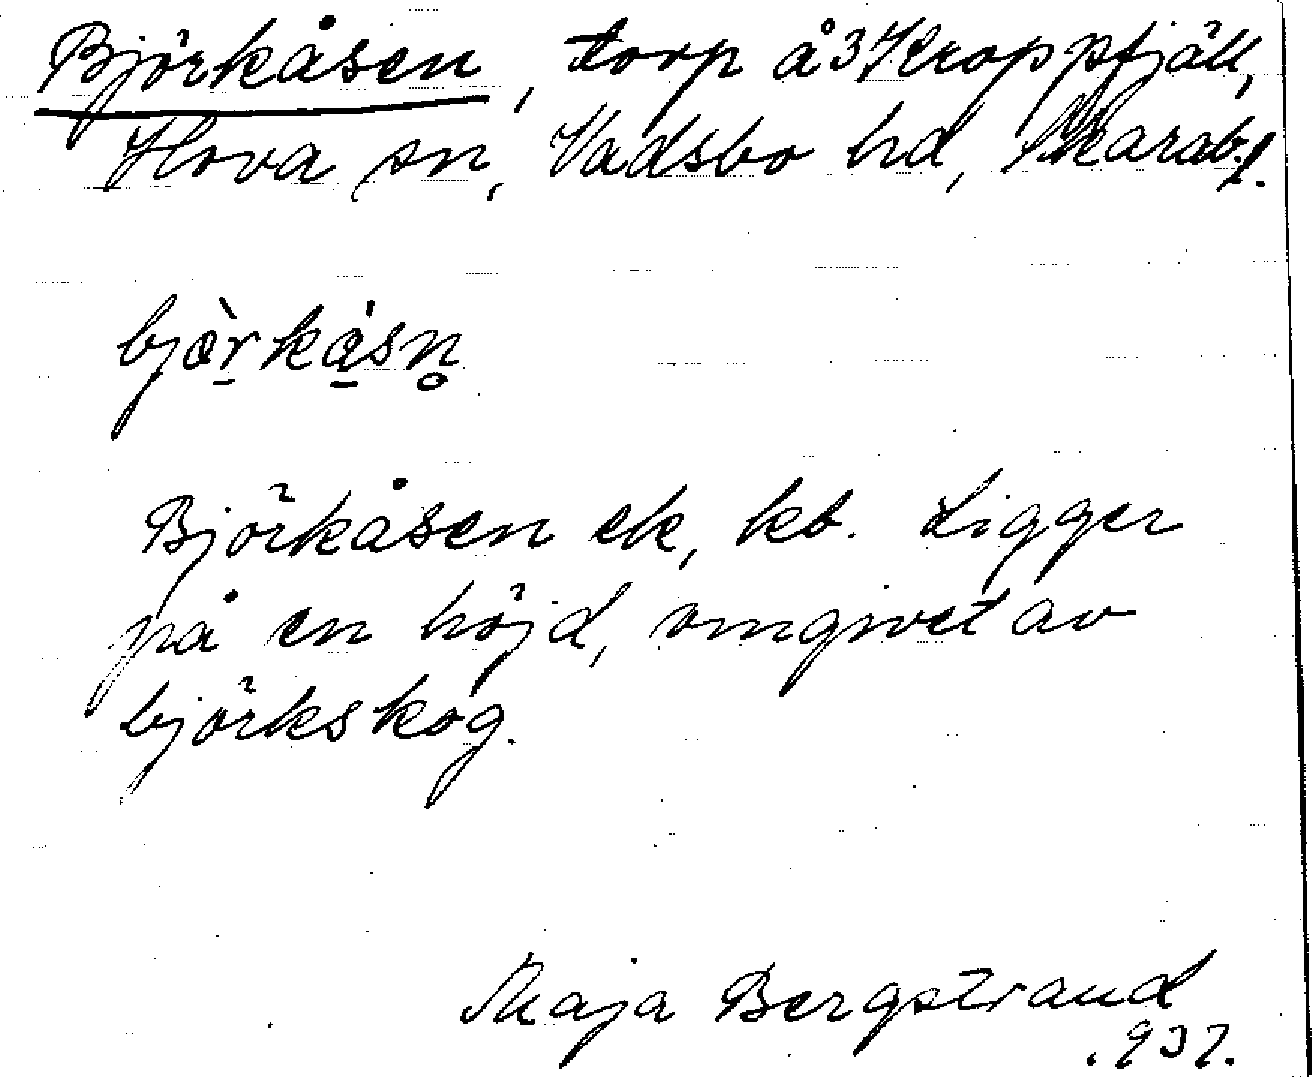 Björkåsen, torp å 3 Kroppfjäll,
Hova sn, Vadsbo hd, Skarab. l.
bjæ̀rkåsn̥
Björkåsen ek, kb. Ligger
på en höjd, omgivet av
björkskog.
Maja Bergstrand
1937.